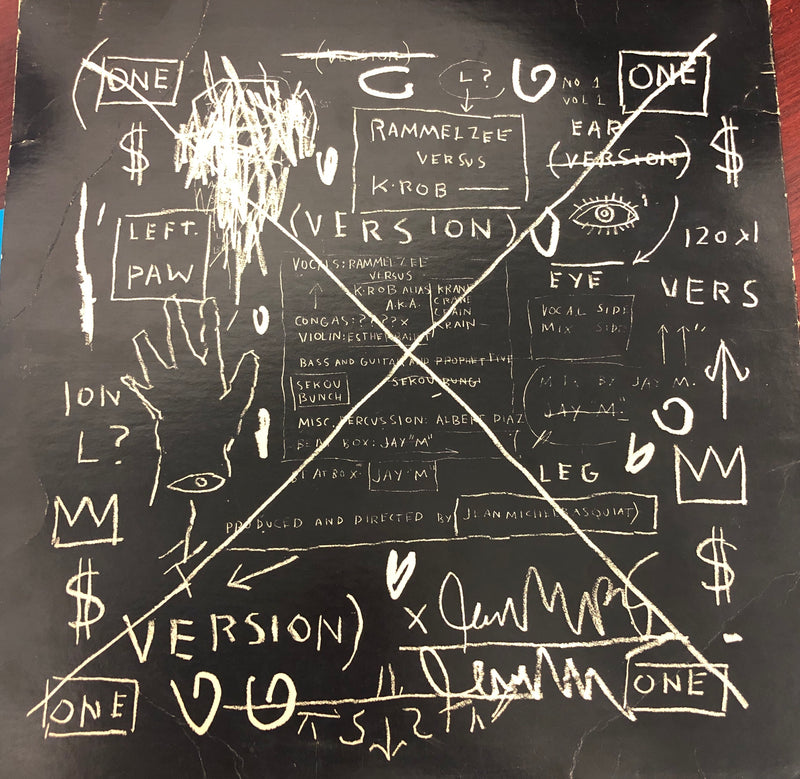 (VERSION)
ONE
L?
NO 1
VOL 1
ONE
RAMMELZEE
VERSUS
K·ROB
EAR
(VERSION)
$
$
(VERSION)
LEFT.
PAW
120 x1
VERS
EYE
VOCALS: RAMMELZEE
VERSUS
K·ROB ALIAS
A.K.A.
KRANE
CRANE
CRAIN
KRAIN
CONGAS: ????x
VIOLIN: ESTHER
BASS AND GUITAR AND PROPHET FIVE
SEKOU
BUNCH
SEKOU
MISC. PERCUSSION: ALBERT DIAZ
BEAT BOX: JAY "M"
BEATBOX- JAY "M"
VOCAL SIDE
MIX SIDE
MIX BY JAY M.
JAY M.
ION
L?
LEG
PRODUCED AND DIRECTED BY (JEAN MICHEL BASQUIAT)
$
$
VERSION)
X
ONE
ONE